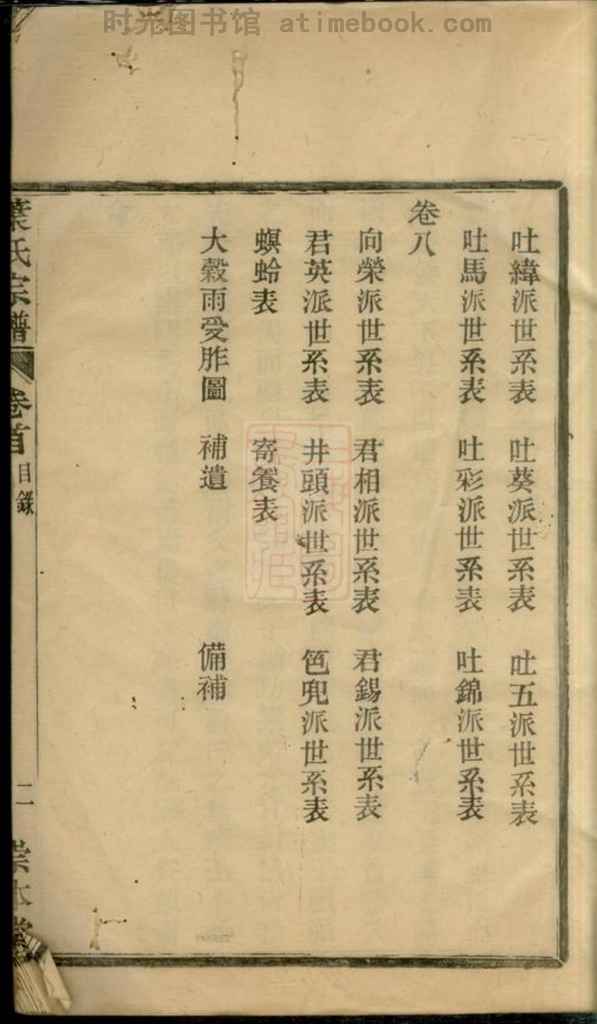 时光图书馆 - atimebook.com
吐緯派世系表 吐葵派世系表 吐五派世系表
吐馬派世系表 吐彩派世系表 吐錦派世系表
卷八
向榮派世系表 君相派世系表 君錫派世系表
君英派世系表 井頭派世系表 笆兜派世系表
螟蛉表 寄養表
大穀雨受胙圖 補遺 備補
葉氏宗譜 卷首 目錄 二 崇本堂